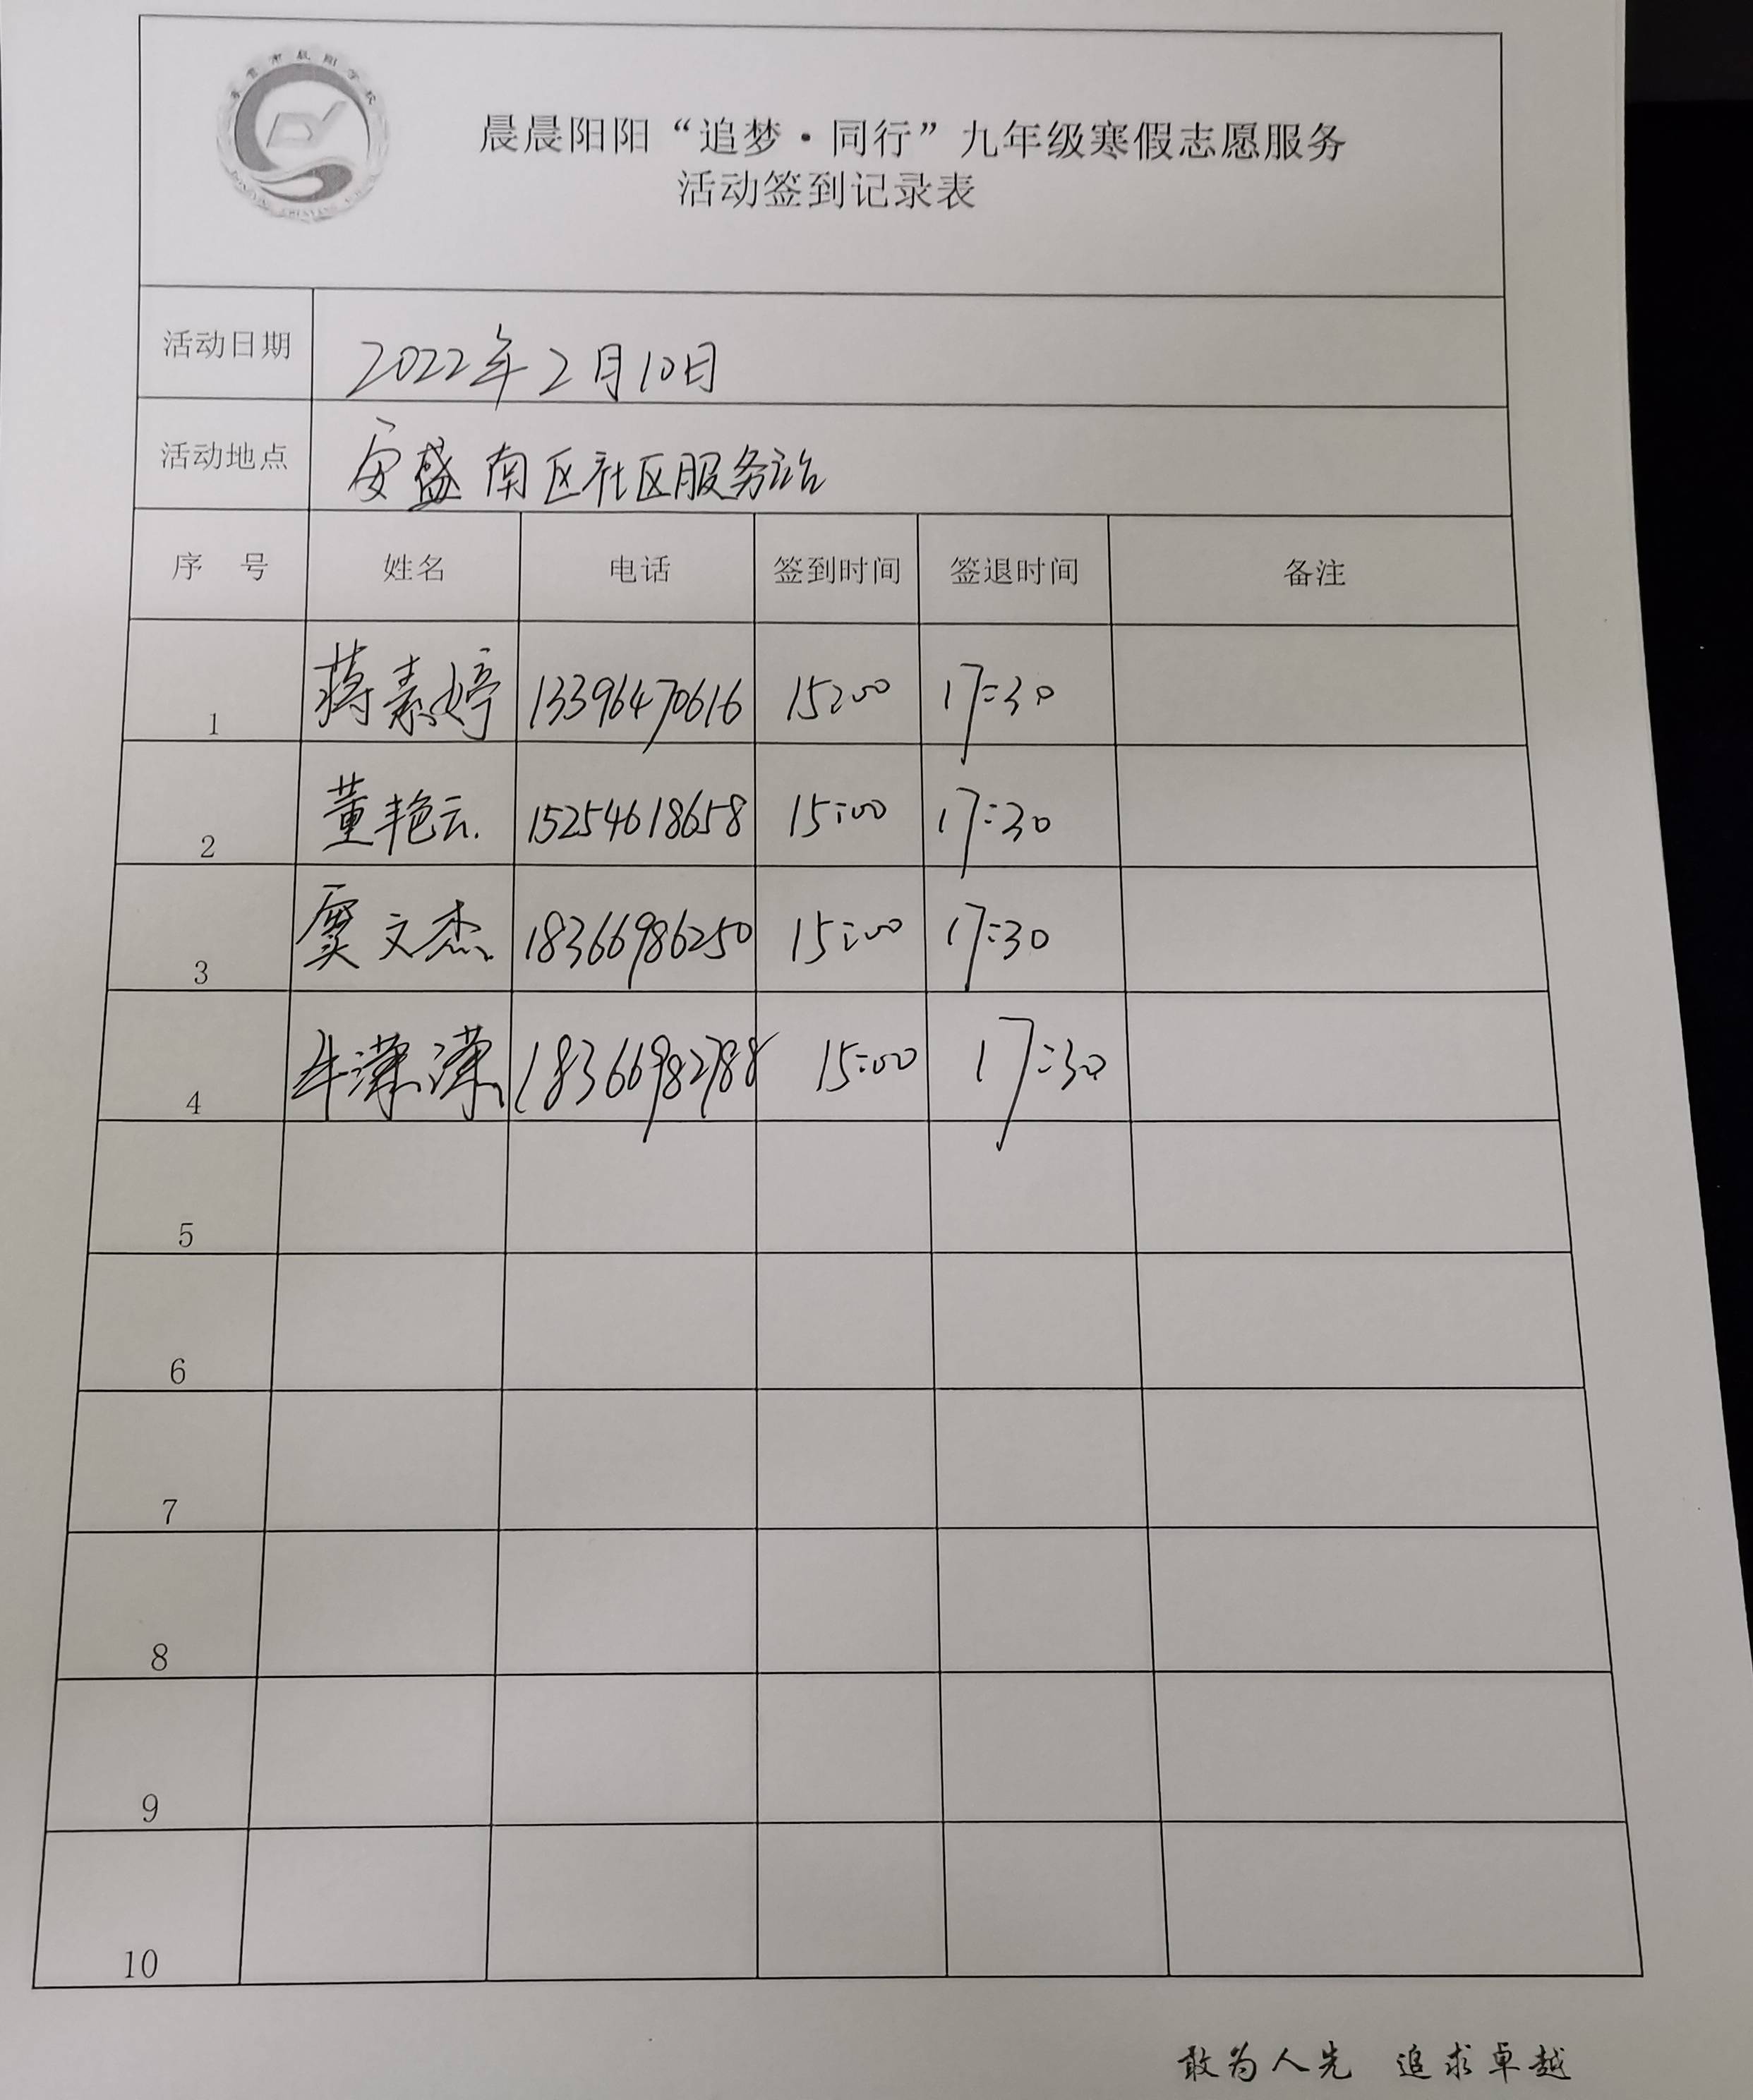 晨晨阳阳“追梦·同行”九年级寒假志愿服务
活动签到记录表
活动日期 2022年2月10日
活动地点 安盛南区社区服务站
序 号 姓名 电话 签到时间 签退时间 备注
1 蒋素婷 13396470616 15:00 17:30
2 董艳云 15254618658 15:00 17:30
3 窦文杰 18366986250 15:00 17:30
4 牛潇潇 18366982788 15:00 17:30
5
6
7
8
9
10
敢为人先 追求卓越